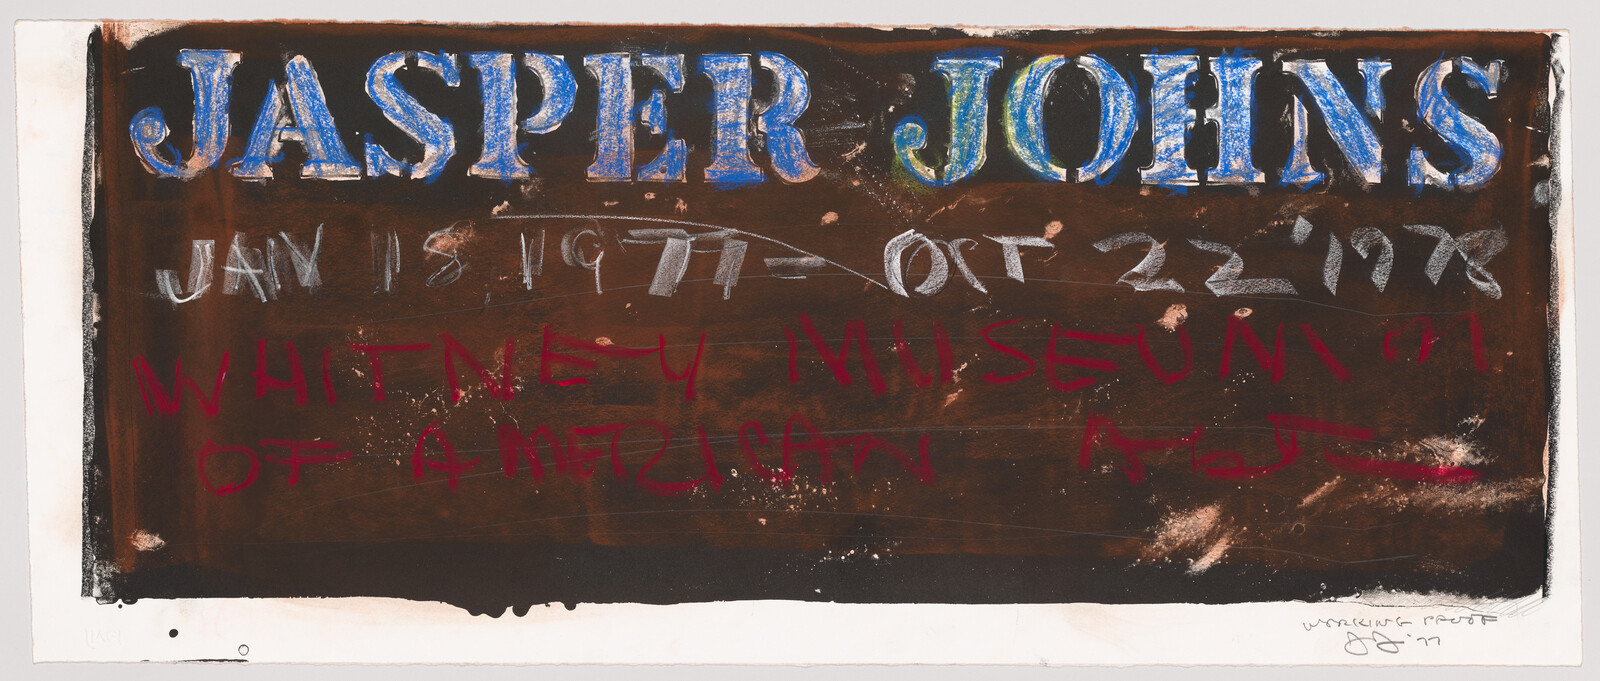 JASPER JOHNS
JAN 18 1977 - OCT 22 '1978
WHITNEY MUSEUM M
OF AMERICAN
WORKING PROOF
JJ '77